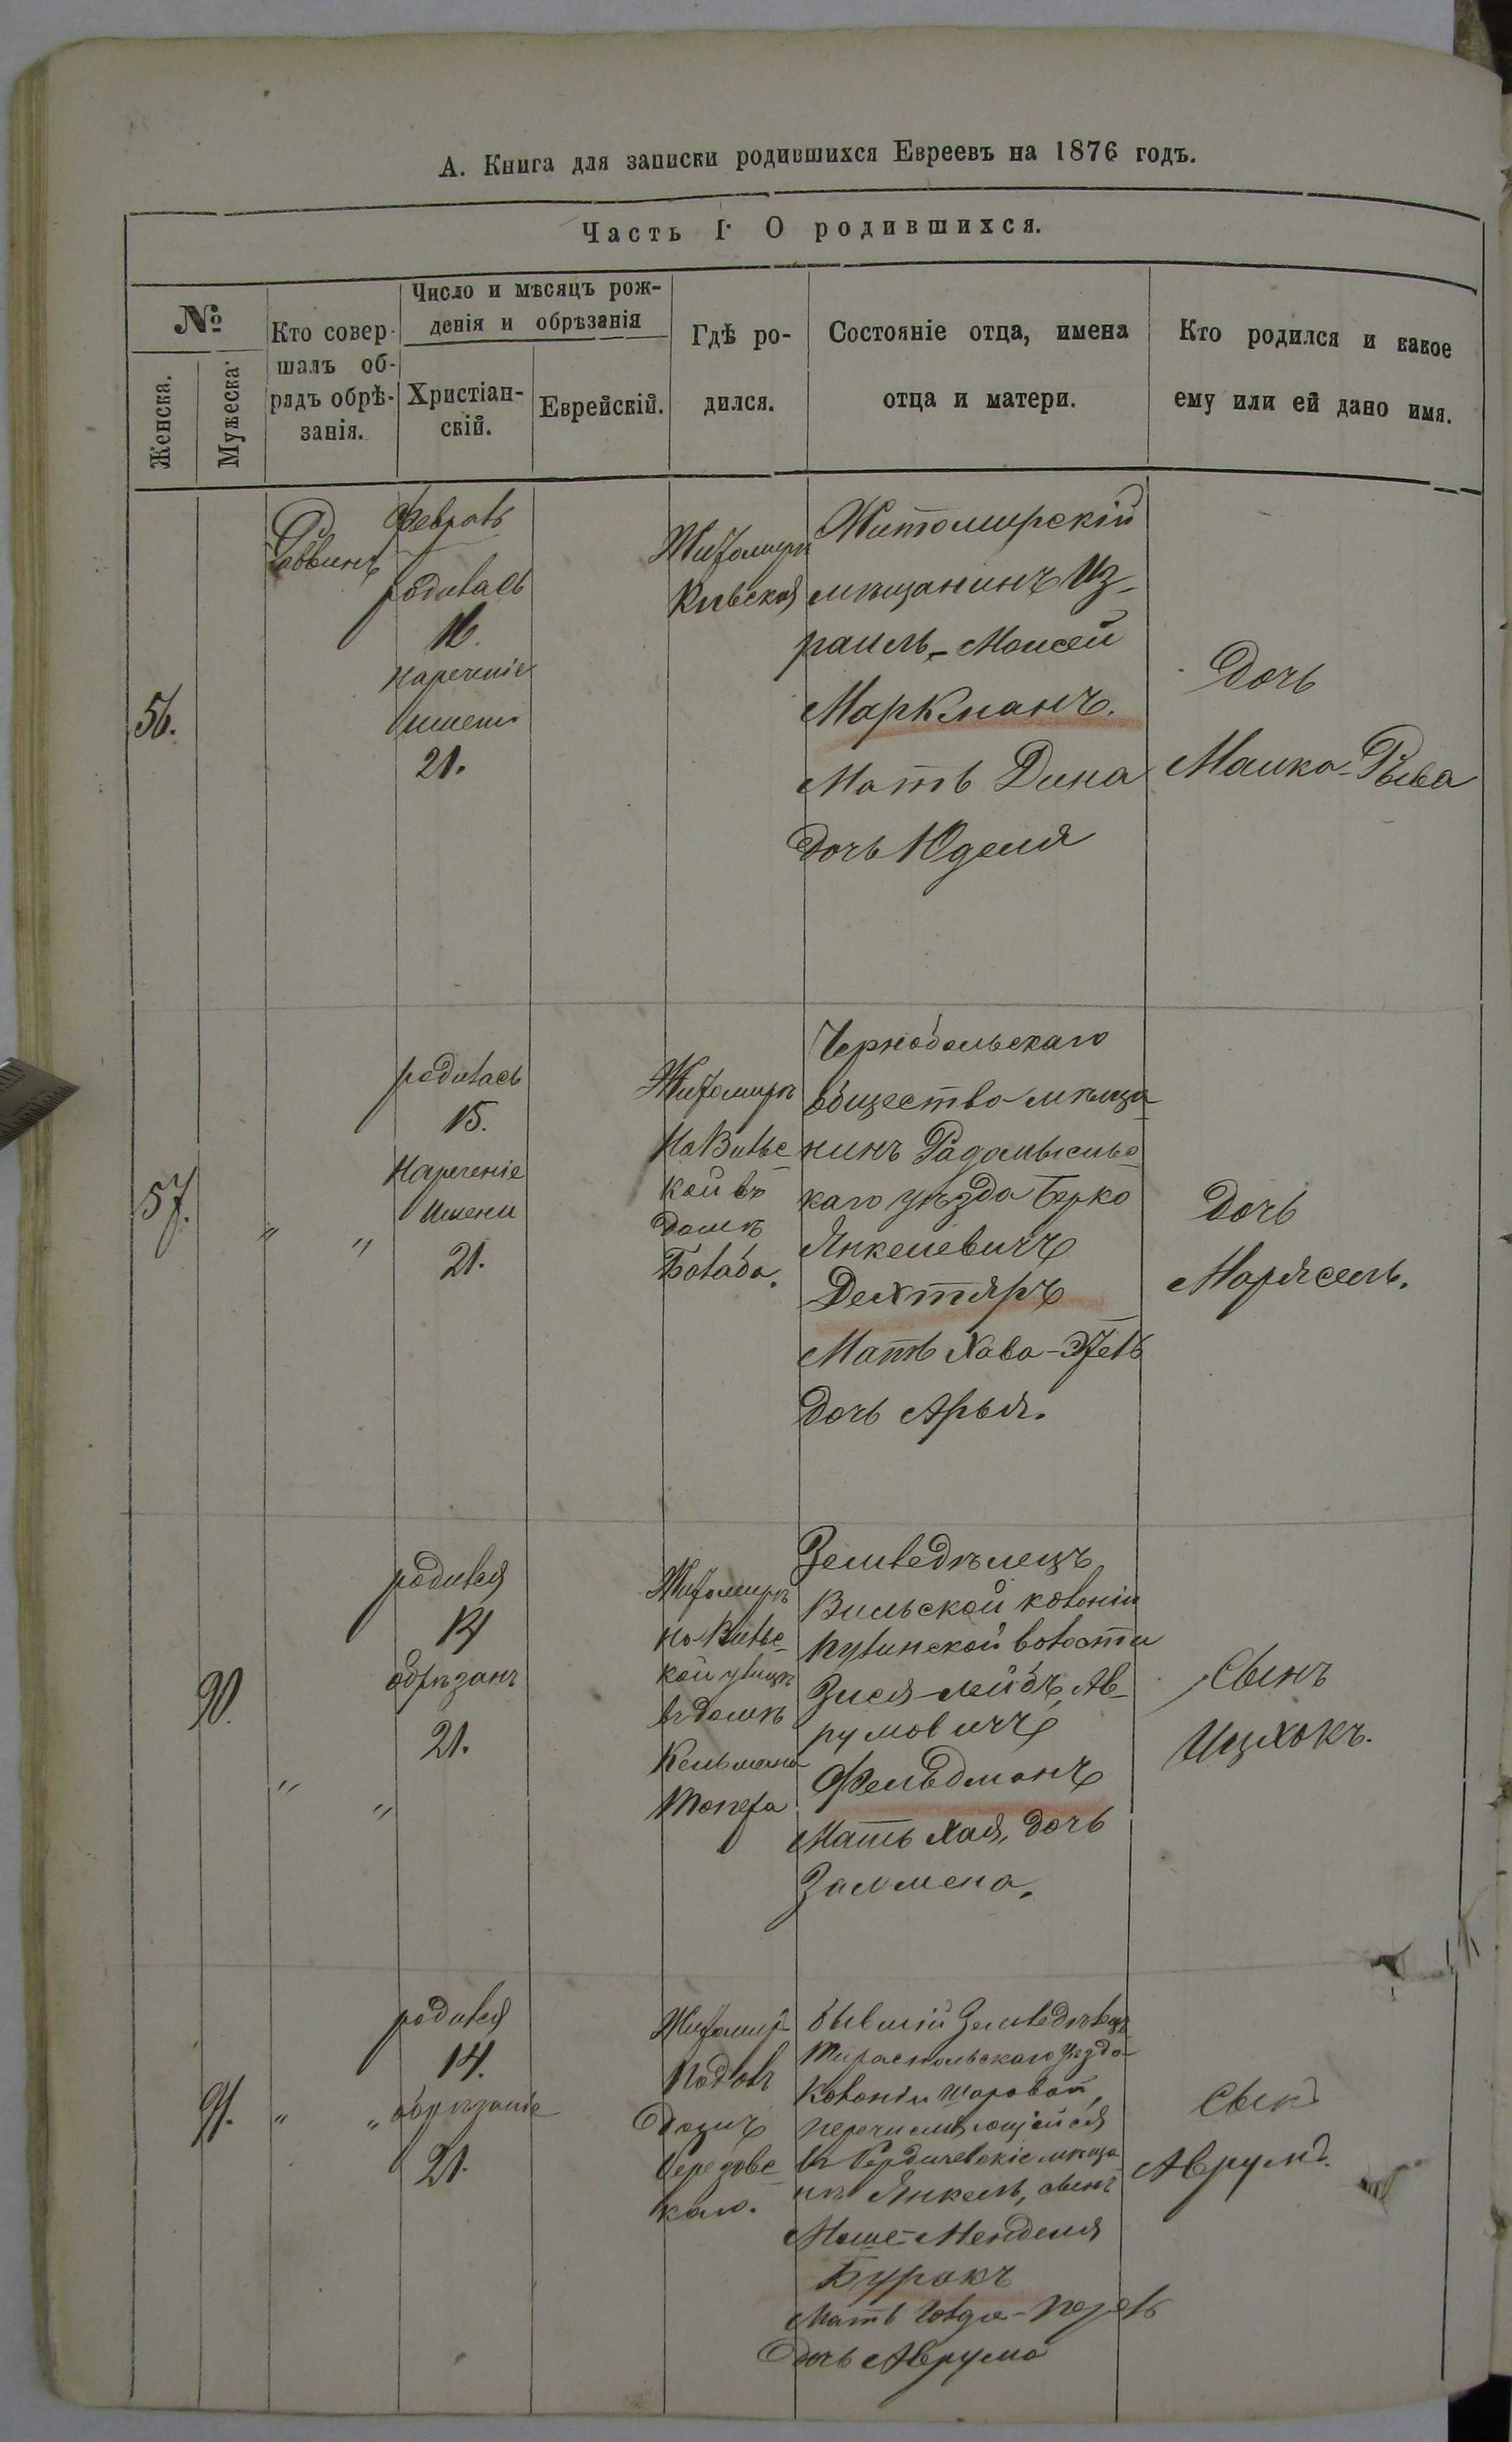 А. Книга для записки родившихся Евреевъ на 1876 годъ.
Часть I. О родившихся.
№
Женска.
Мужеска
Кто совер-
шалъ об-
рядъ обрѣ-
занія.
Число и мѣсяцъ рож-
денія и обрѣзанія
Христіан-
скій.
Еврейскій.
Гдѣ ро-
дился.
Состояніе отца, имена
отца и матери.
Кто родился и какое
ему или ей дано имя.
56.
Раввинъ
Февраль
родилась
16.
нареченіе
имени
21.
Житомиръ
Киевская
Житомирскій
мѣщанинъ Из-
раиль-Моисей
Маркманъ.
Мать Дина
дочь Юделя
Дочь
Малка-Рыва
57.
" "
родилась
15.
Нареченіе
имени
21.
Житомиръ
На Вильс-
кой въ
домѣ
Болаба.
Чернобольскаго
общества мѣща-
нинъ Радомысльс-
каго уѣзда Берко
Янкелевичъ
Дехтяръ
Мать Хава-Этель
дочь Арья.
Дочь
Марясель.
90.
" "
родился
14
обрѣзанъ
21.
Житомиръ
на Вильс-
кой улицѣ
въ домѣ
Кельмана
Топера
Земледѣлецъ
Вильской колоніи
Пулинской волости
Зися-Лейбъ Ав-
румовичъ
Фельдманъ
Мать Хая, дочь
Залмена.
Сынъ
Ицхокъ.
91.
" "
родился
14.
обрѣзаніе
21.
Житомир
Подолъ
Бывшій Земледѣлецъ
Тираспольскаго уѣзда
Колоніи
перечисляющійся
въ Бердичевскіе мѣща-
не Янкель, сынъ
Моше-Менделя
Буракъ
Мать Голда-Перель
дочь Аврума
Сынъ
Аврумъ.